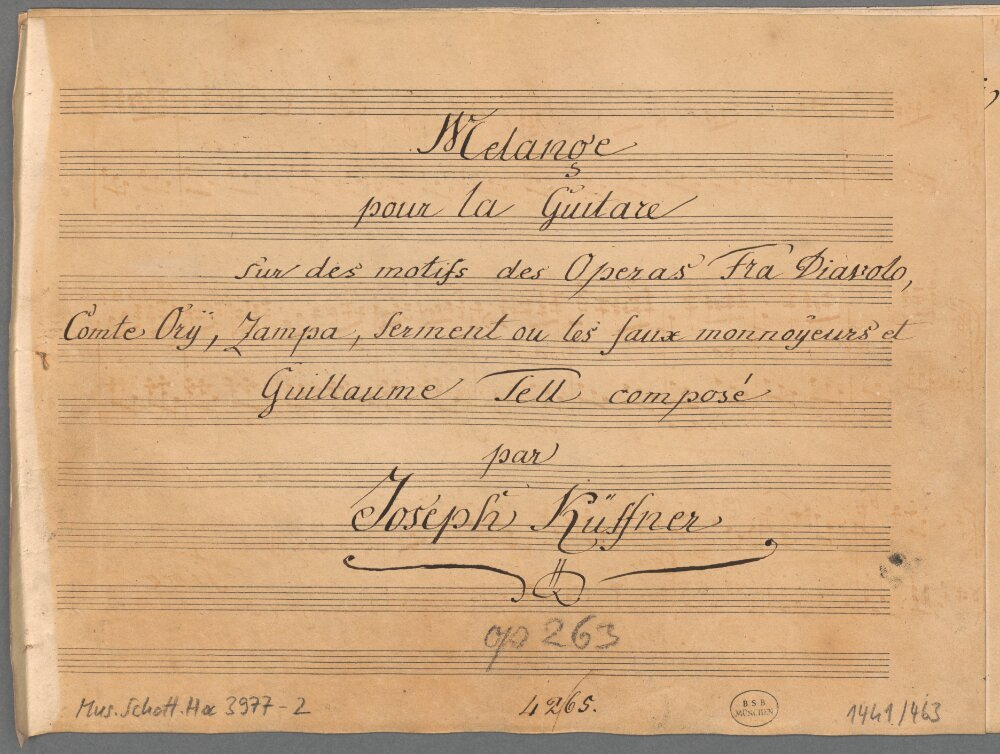 Melange
pour la Guitare
sur des motifs des Operas Fra Diavolo,
Comte Orÿ, Zampa, Serment ou les faux monnoÿeurs et
Guillaume Tell composé
par
Joseph Küffner
op 263
Mus.Schott.Ha 3977-2
4265.
B.S.B.
MÜNCHEN
1441/463